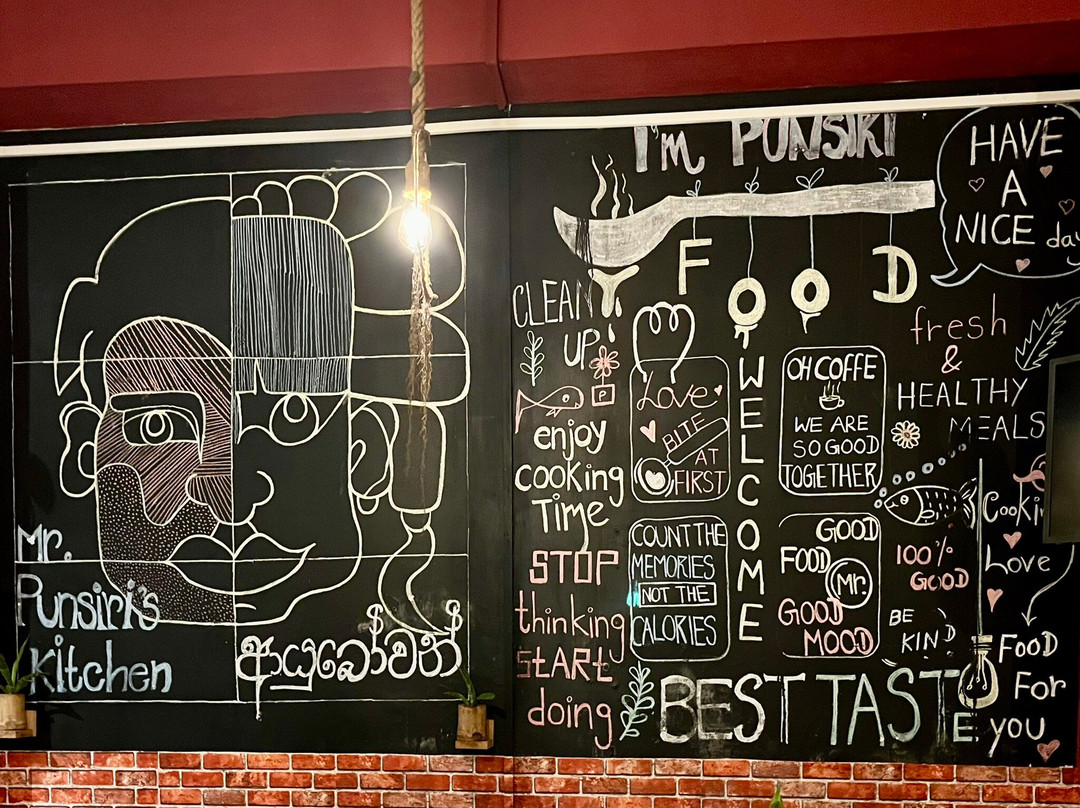 Mr.
Punsiri's
Kitchen
ආයුබෝවන්
I'm PUNSIRI
FOOD
HAVE
A
NICE day
CLEAN
UP!
enjoy
cooking
Time
STOP
thinking
START
doing
Love
BITE
AT
FIRST
COUNT THE
MEMORIES
NOT THE
CALORIES
WELCOME
OH COFFE
WE ARE
SO GOOD
TOGETHER
GOOD
FOOD
Mr.
GOOD
MOOD
fresh
&
HEALTHY
MEALS
100%
GOOD
BE
KIND
Love
FOOD
For
you
BEST TASTE